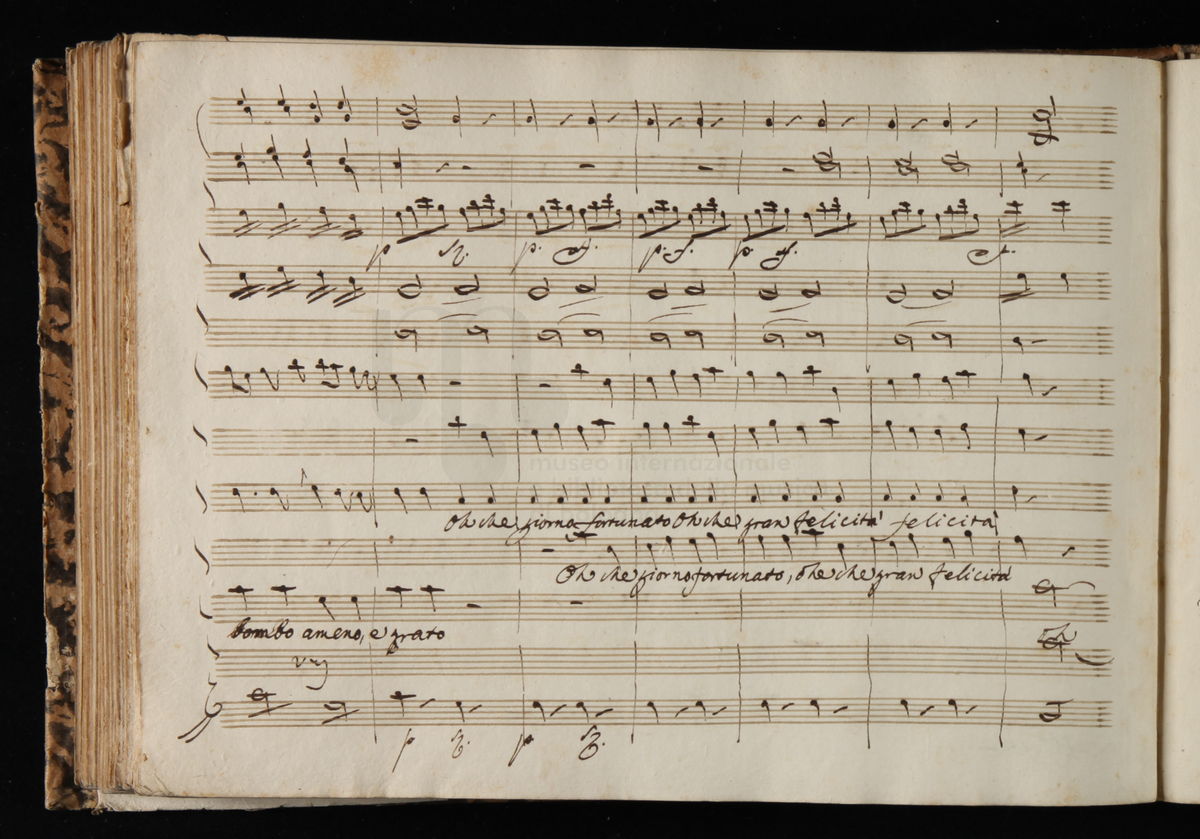 p f. p. f. p. f. p. f. f.
museo internazionale
Oh che giorno fortunato Oh che gran felicità felicità
Oh che giorno fortunato, Oh che gran felicità
bombo ameno, e grato
Oh
p f. p f.